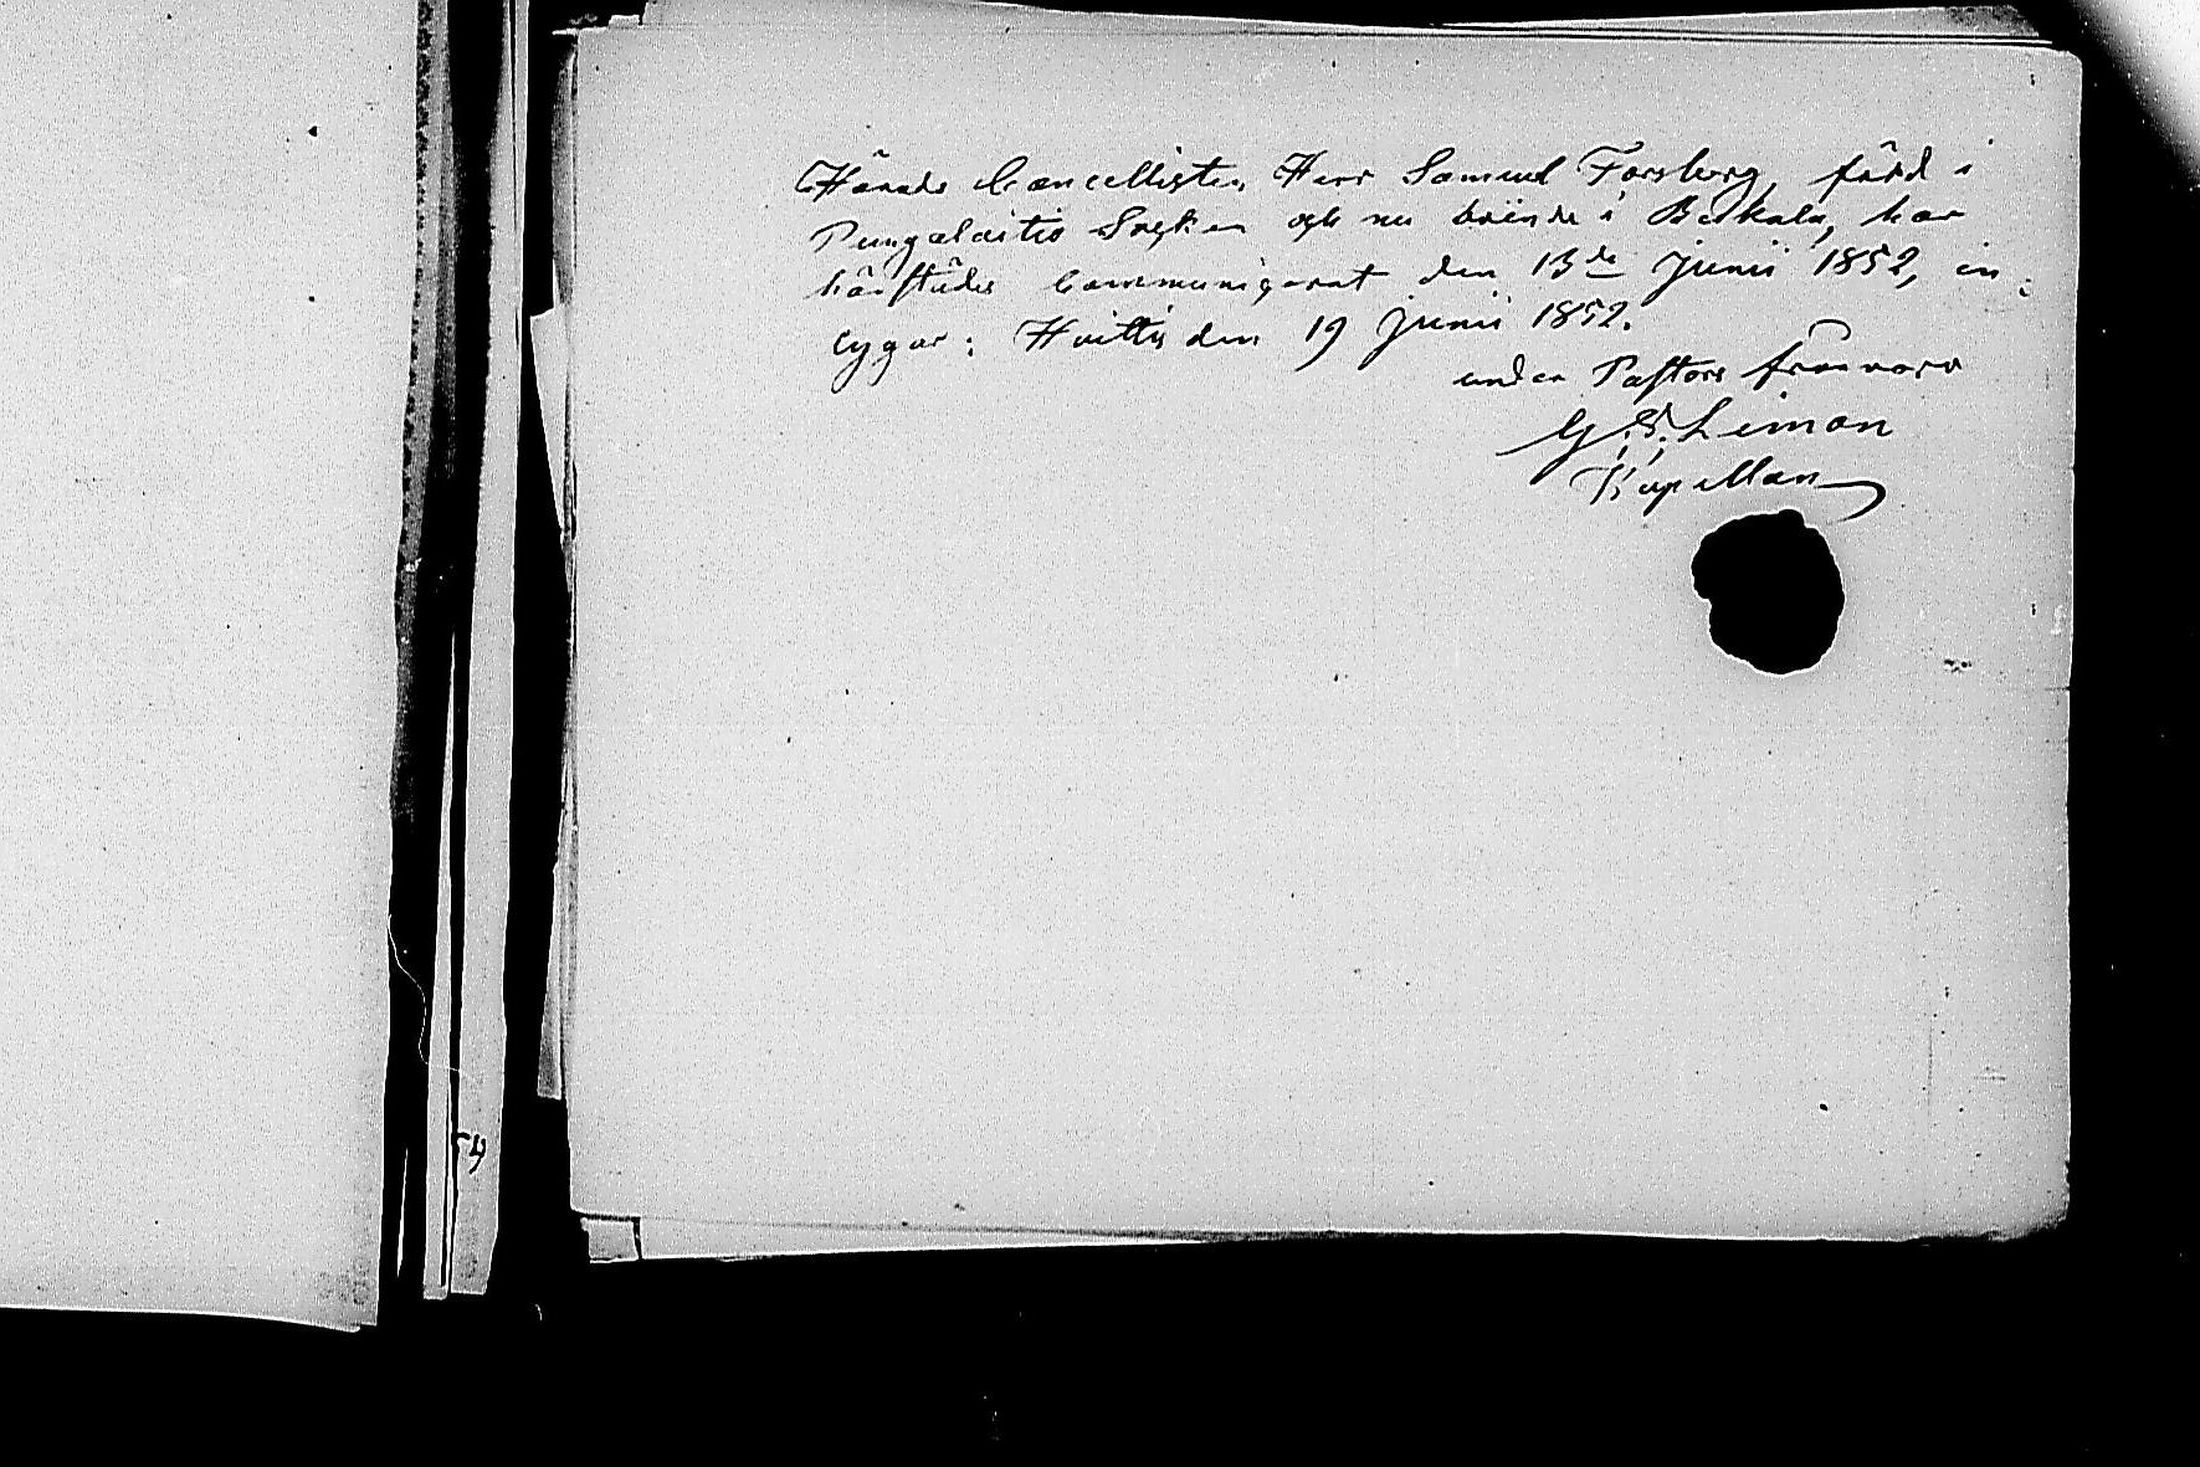 Härads Cancellisten Herr Samuel Forsberg, född i
Pungalaitio Socken och nu boende i Backala, har
härstädes Communicerat den 13de Junii 1852, in-
tygar; Huittis den 19 Junii 1852.
under Pastors frånvaro
G. S. Liman
Kapellan
54